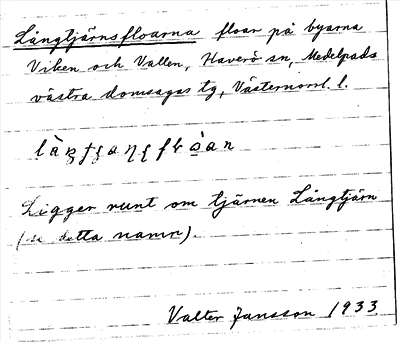 Långtjärnsfloarna floar på byarna
Viken och Vallen, Haverö sn, Medelpads
västra domsagas tg, Västernorrl. l.
Ligger runt om tjärnen Långtjärn
(se detta namn).
Valter Jansson 1933